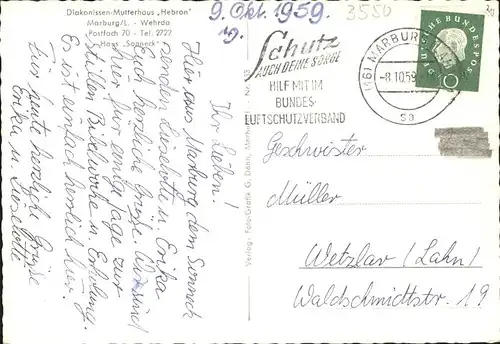 Diakonissen-Mutterhaus „Hebron"
Marburg/L. - Wehrda
Postfach 70 - Tel. 2722
Haus „Sonneck"
9. Okt. 1959.
19.
3550
Ihr Lieben!
Hier aus Marburg dem Sonneck
senden Liselotte u. Erika
Euch herzliche Grüße. Wir sind
hier für einige Tage zur
stillen Bibelwoche u. Erholung.
Es ist einfach herrlich hier.
Für heute herzliche Grüße
Erika u. Liselotte
Verlag: Foto-Grafik G. Dähn, Marburg
Schutz
AUCH DEINE SORGE
HILF MIT IM
BUNDES-
LUFTSCHUTZVERBAND
(16) MARBURG
-8.10.59
sa
DEUTSCHE BUNDESPOST
10
Geschwister
Müller
Wetzlar (Lahn)
Waldschmidtstr. 19